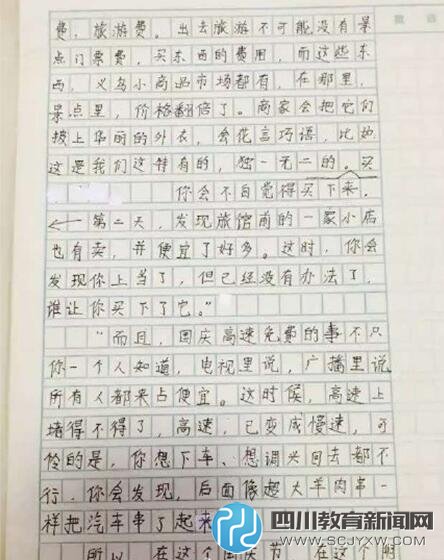 费，旅游费。出去旅游不可能没有景
点门票费，买东西的费用，而这些东
西，义乌小商品市场都有，在那里，
景点里，价格翻倍了。商家会把它们
披上华丽的外衣，会花言巧语，比如
这是我们这特有的，独一无二的。买
你会不自觉得买下来，
第二天，发现旅馆前的一家小店
也有卖，并便宜了好多。这时，你会
发现你上当了，但已经没有办法了，
谁让你买下了它。”
“而且，国庆高速免费的事不只
你一个人知道，电视里说，广播里说
所有人都来占便宜。这时候，高速上
堵得不得了，高速，已变成慢速，可
怜的是，你想下车、想调头回去都不
行，你会发现，后面像超大羊肉串一
样把汽车串了起来
所以，在这个国庆节，在这个时
四川教育新闻网
WWW.SCJYXW.COM